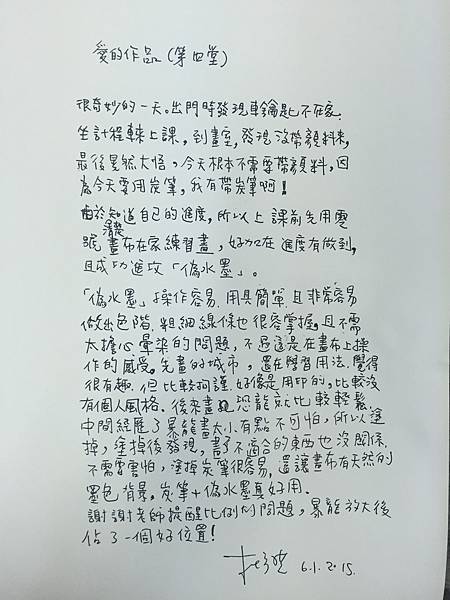 愛的作品(第四堂)
很奇妙的一天。出門時發現車鑰匙不在家.
坐計程車來上課，到畫室，發現沒帶顏料來,
最後晃然大悟，今天根本不需要帶顏料，因
為今天要用炭筆，我有帶炭筆啊！
由於知道自己的進度，所以上課前先用零
號畫布在家練習畫，好加在進度有做到,
且成功進攻「偽水墨」。
「偽水墨」操作容易.用具簡單且非常容易
做出色階.粗細線條也很容掌握,且不需
太擔心暈染的問題，不過這是在畫布上操
作的感受。先畫的城市，還在學習用法.覺得
很有趣.但比較拘謹.好像是用印的,比較沒
有個人風格.後來畫恐龍就比較輕鬆.
中間經歷了暴龍畫太小有點不可怕，所以塗
掉，塗掉後發現,畫了不適合的東西也沒關係.
不需要害怕，塗掉炭筆很容易,還讓畫布有天然的
墨色背景。炭筆+偽水墨真好用.
謝謝老師提醒比例的問題，暴龍放大後
佔了一個好位置!
6.1.2015.